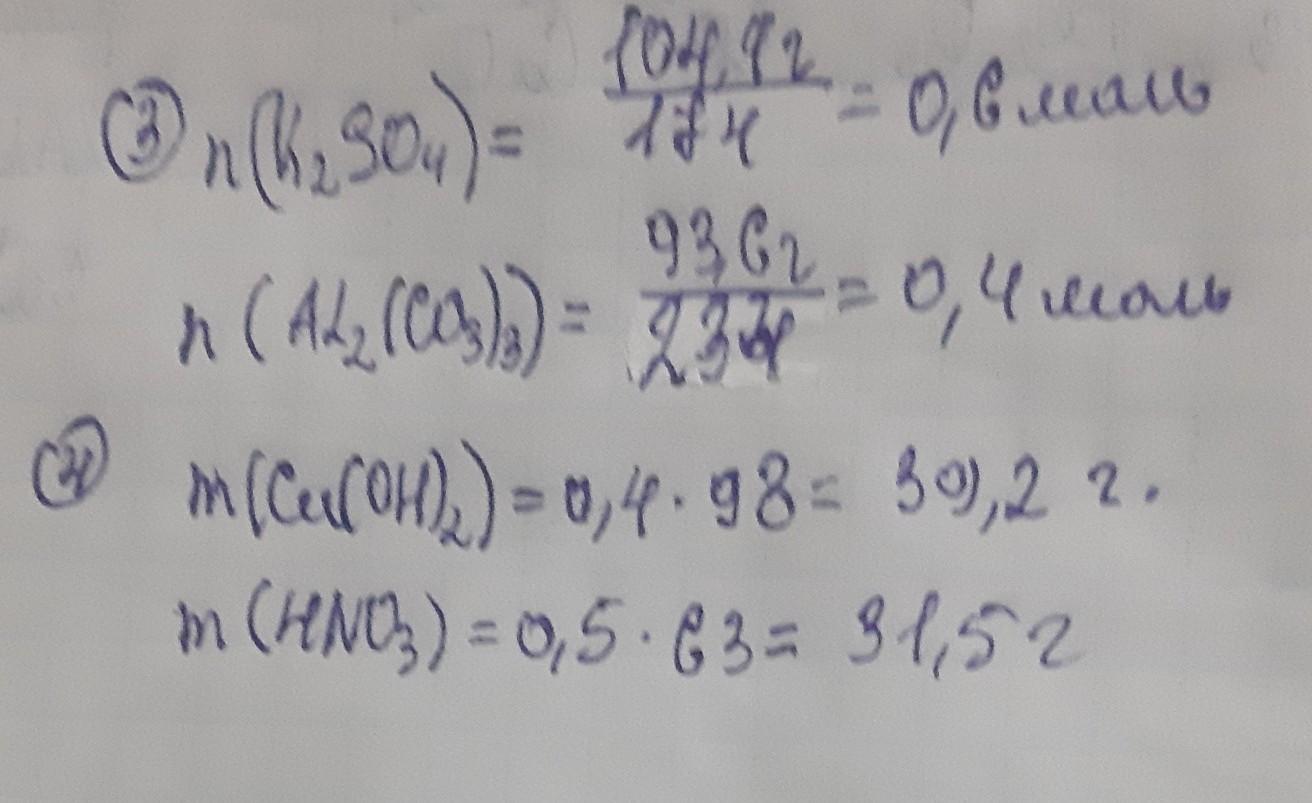 ③ n(K₂SO₄) = 104,4г / 174 = 0,6 моль
n(Al₂(CO₃)₃) = 93,6г / 234 = 0,4 моль
④ m(Cu(OH)₂) = 0,4 · 98 = 39,2 г.
m(HNO₃) = 0,5 · 63 = 31,5 г